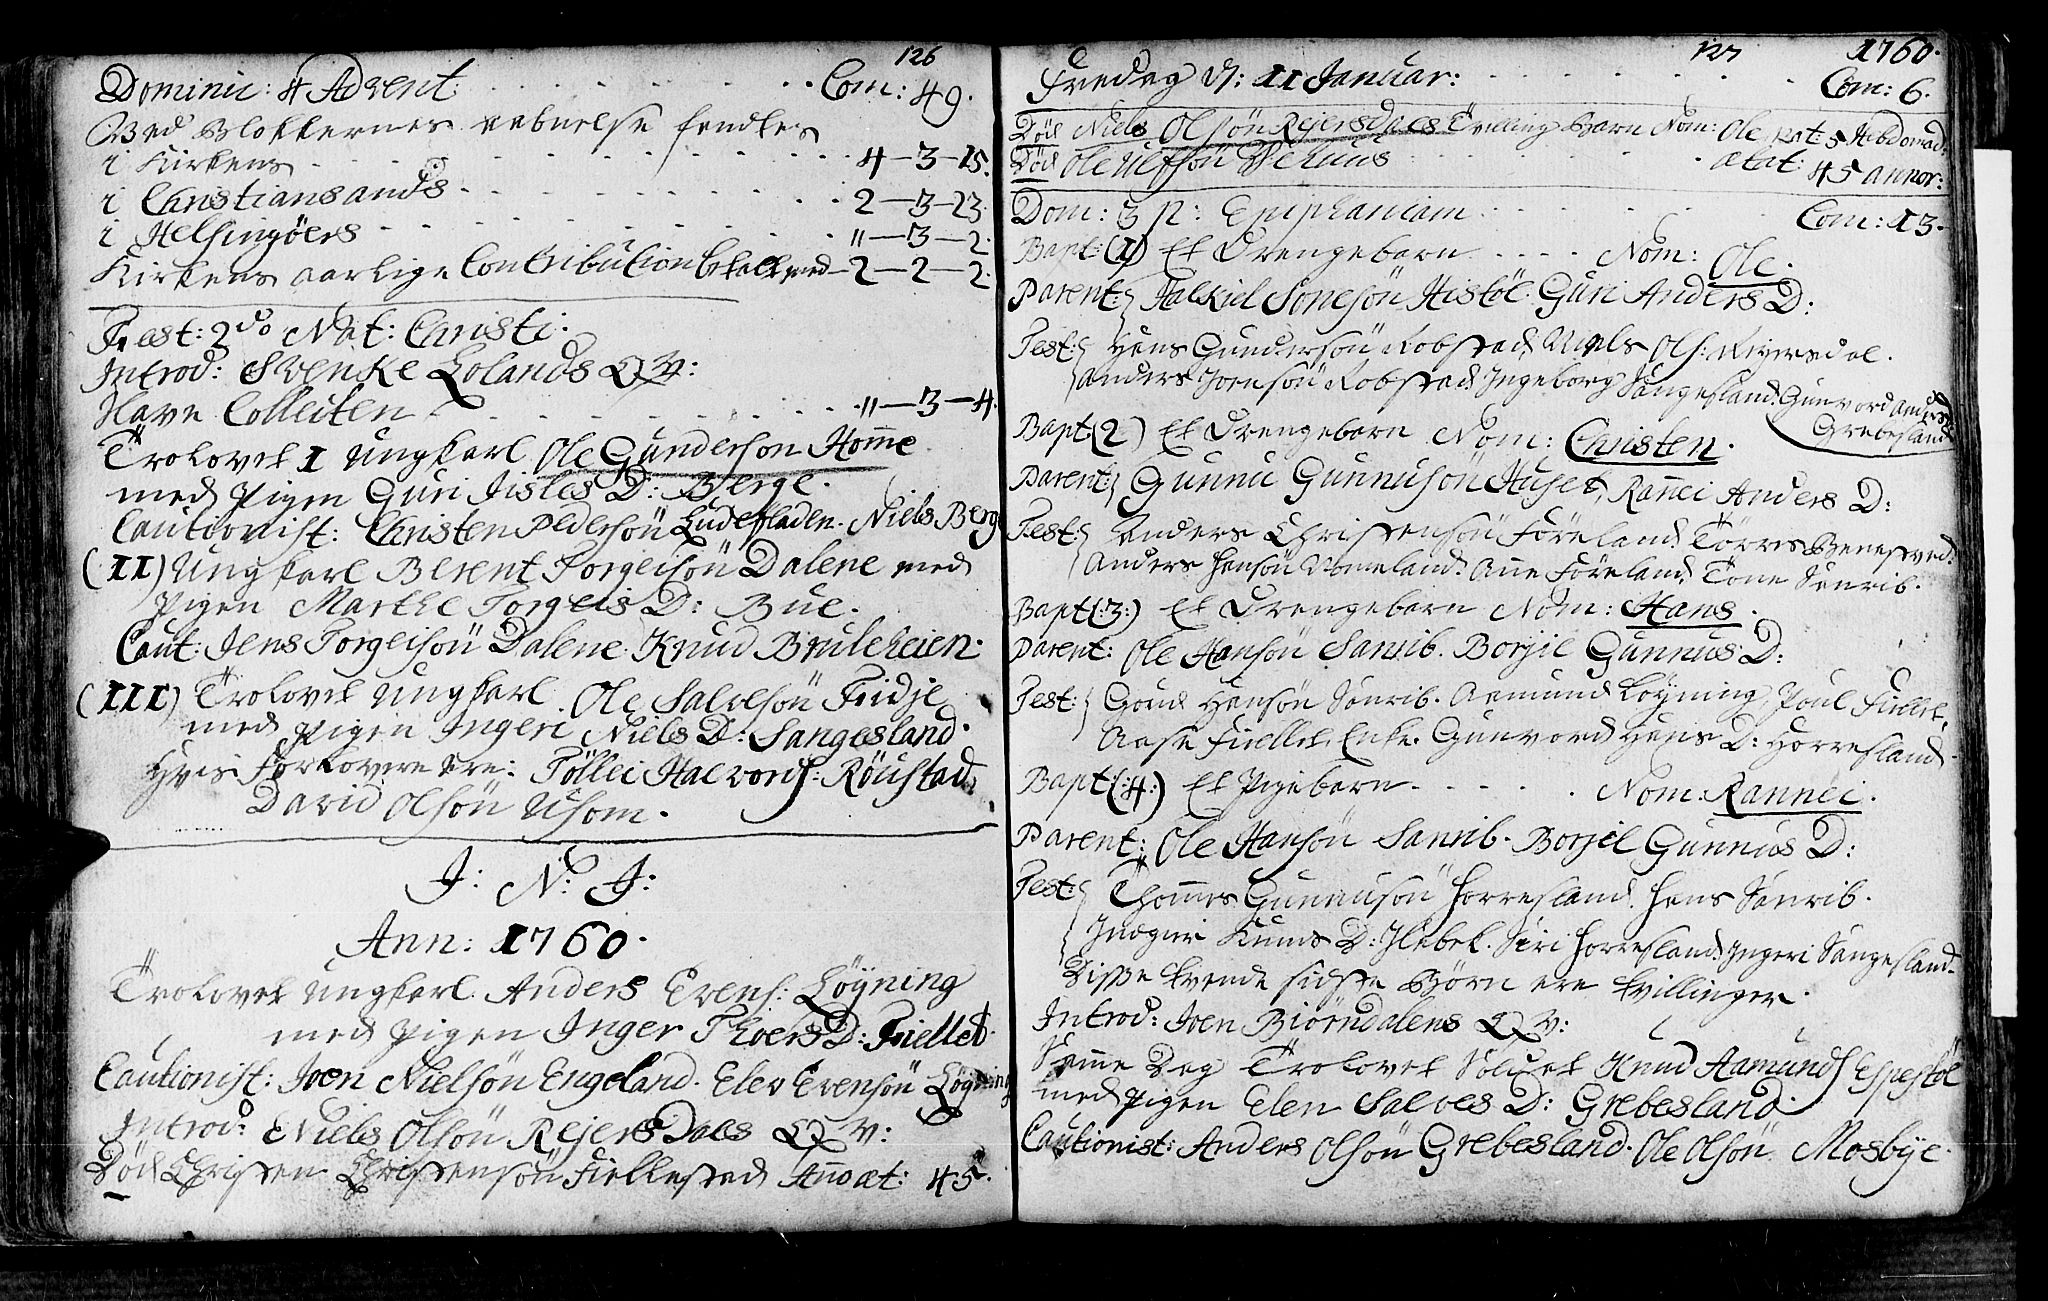 126
Dominic: 4 Advent: Com: 49.
Ved Blokkernes aabnelse fandtes
i Kirkens 4-3-15.
i Christiansands 2-3-23.
i Helsingöers "-3-2.
Kirkens aarlige Contribution betalt med 2-2-2.
Fest: 2do Nat: Christi.
Introd: Svenke Lolands Q V:
Have Collecten "-3-4.
Trolovet I Ungkarl Ole Gunderson Home
med Pigen Guri Jisles D: Berge.
Cautionist: Christen Pedersön Ludesladen. Niels Berge
(II) Ungkarl Berent Torgeisön Dalene med
Pigen Marthe Torgeis D: Bue.
Caut: Jens Torgeisön Dalene. Knud Bruleheien.
(III) Trolovet Ungkarl Ole Salvesön Fidje
med Pigen Ingeri Niels D: Sangesland.
Hvis Forlovere ere: Töllei Halvors: Röiistad.
David Olsön Usom.
J: N: J:
Ann: 1760.
Trolovet Ungkarl Anders Evens: Löyning
med Pigen Inger Thoers D: Fiellet.
Cautionist: Joen Nielsön Engeland. Elev Evensön Löyning
Introd: Niels Olsön Rejersdals Q V:
Död Christen Christensön Fiellestad Ano æt: 45.
127 1760.
Fredag d: 11 Januar: Com: 6.
Död Niels Olsön Rejersdals Tvilling Barn Nom: Ole æat: 5 Hebdomad:
Död Ole Ulfsön Vehuus ætat: 45 annor:
Dom: 3 p: Epiphaniam Com: 13.
Bapt: (1) Et Drengebarn Nom: Ole.
Parent: Falkiel Sonesön Histöl. Guri Anders D:
Test: Hans Gundersön Robstad, Niels Ols: Rejersdal.
Anders Joensön Robstad Ingeborg Sangesland. Gunvord Anders D
Grebesland
Bapt (2) Et Drengebarn Nom: Christen.
Parent: Gunnu Gunnusön Huset, Rannei Anders D:
Test: Anders Christensön Föreland. Törres Benestved.
Anders Hansön Nomeland. Ane Föreland. Tone Sanrib.
Bapt (3:) Et Drengebarn Nom: Hans.
Parent: Ole Hansön Sanrib. Borjil Gunnus D:
Test: Goud Hansön Sanrib. Aamund Löyning, Poul Fiellet,
Aase Fiellet, Enke. Gunvord Hans D: Horresland.
Bapt (:4:) Et Pigebarn Nom: Rannei.
Parent: Ole Hansön Sanrib. Borjel Gunnus D:
Test: Thomes Gunnusön Horresland. Hans Sanrib.
Knuds D: Ilebek. Siri Horresland. Ingeri Sangesland.
Disse tvende sidste Börn ere tvillinger.
Introd: Joen Biörndalens Q V:
Same Dag Trolovet Soldet Knud Aamunds Espestöl
med Pigen Elen Salves D: Grebesland.
Cautionist: Anders Olsön Grebesland. Ole Olsön Mosbye.